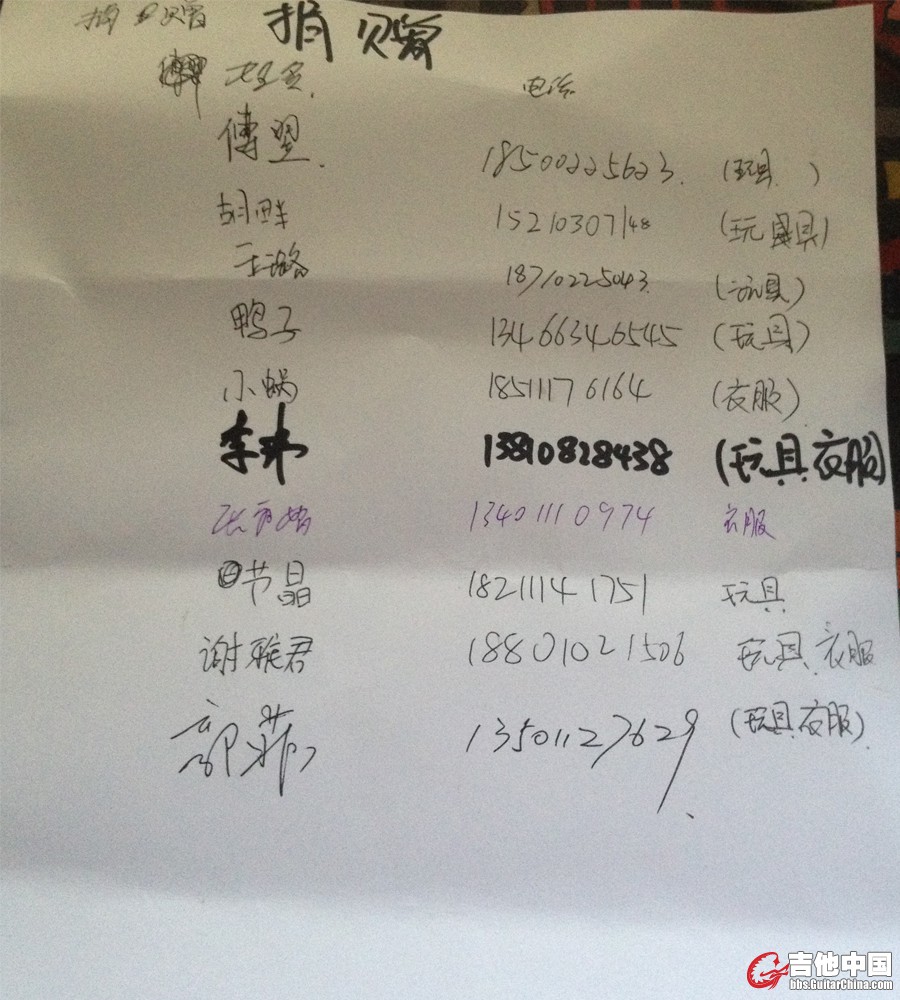 捐 赠 捐 赠
电话
傅翌 18500225623. (玩具)
胡畔 15210307148 (玩具)
王璐 18710225043. (玩具)
鸭子 13466346545 (玩具)
小蜗 18511176164 (衣服)
李玮 13810828438 (玩具衣服)
13401110974 衣服
节晶 18211141751 玩具
谢雅君 18801021506 玩具 衣服
郭菲 13501127629 (玩具衣服).
吉他中国
bbs.GuitarChina.com